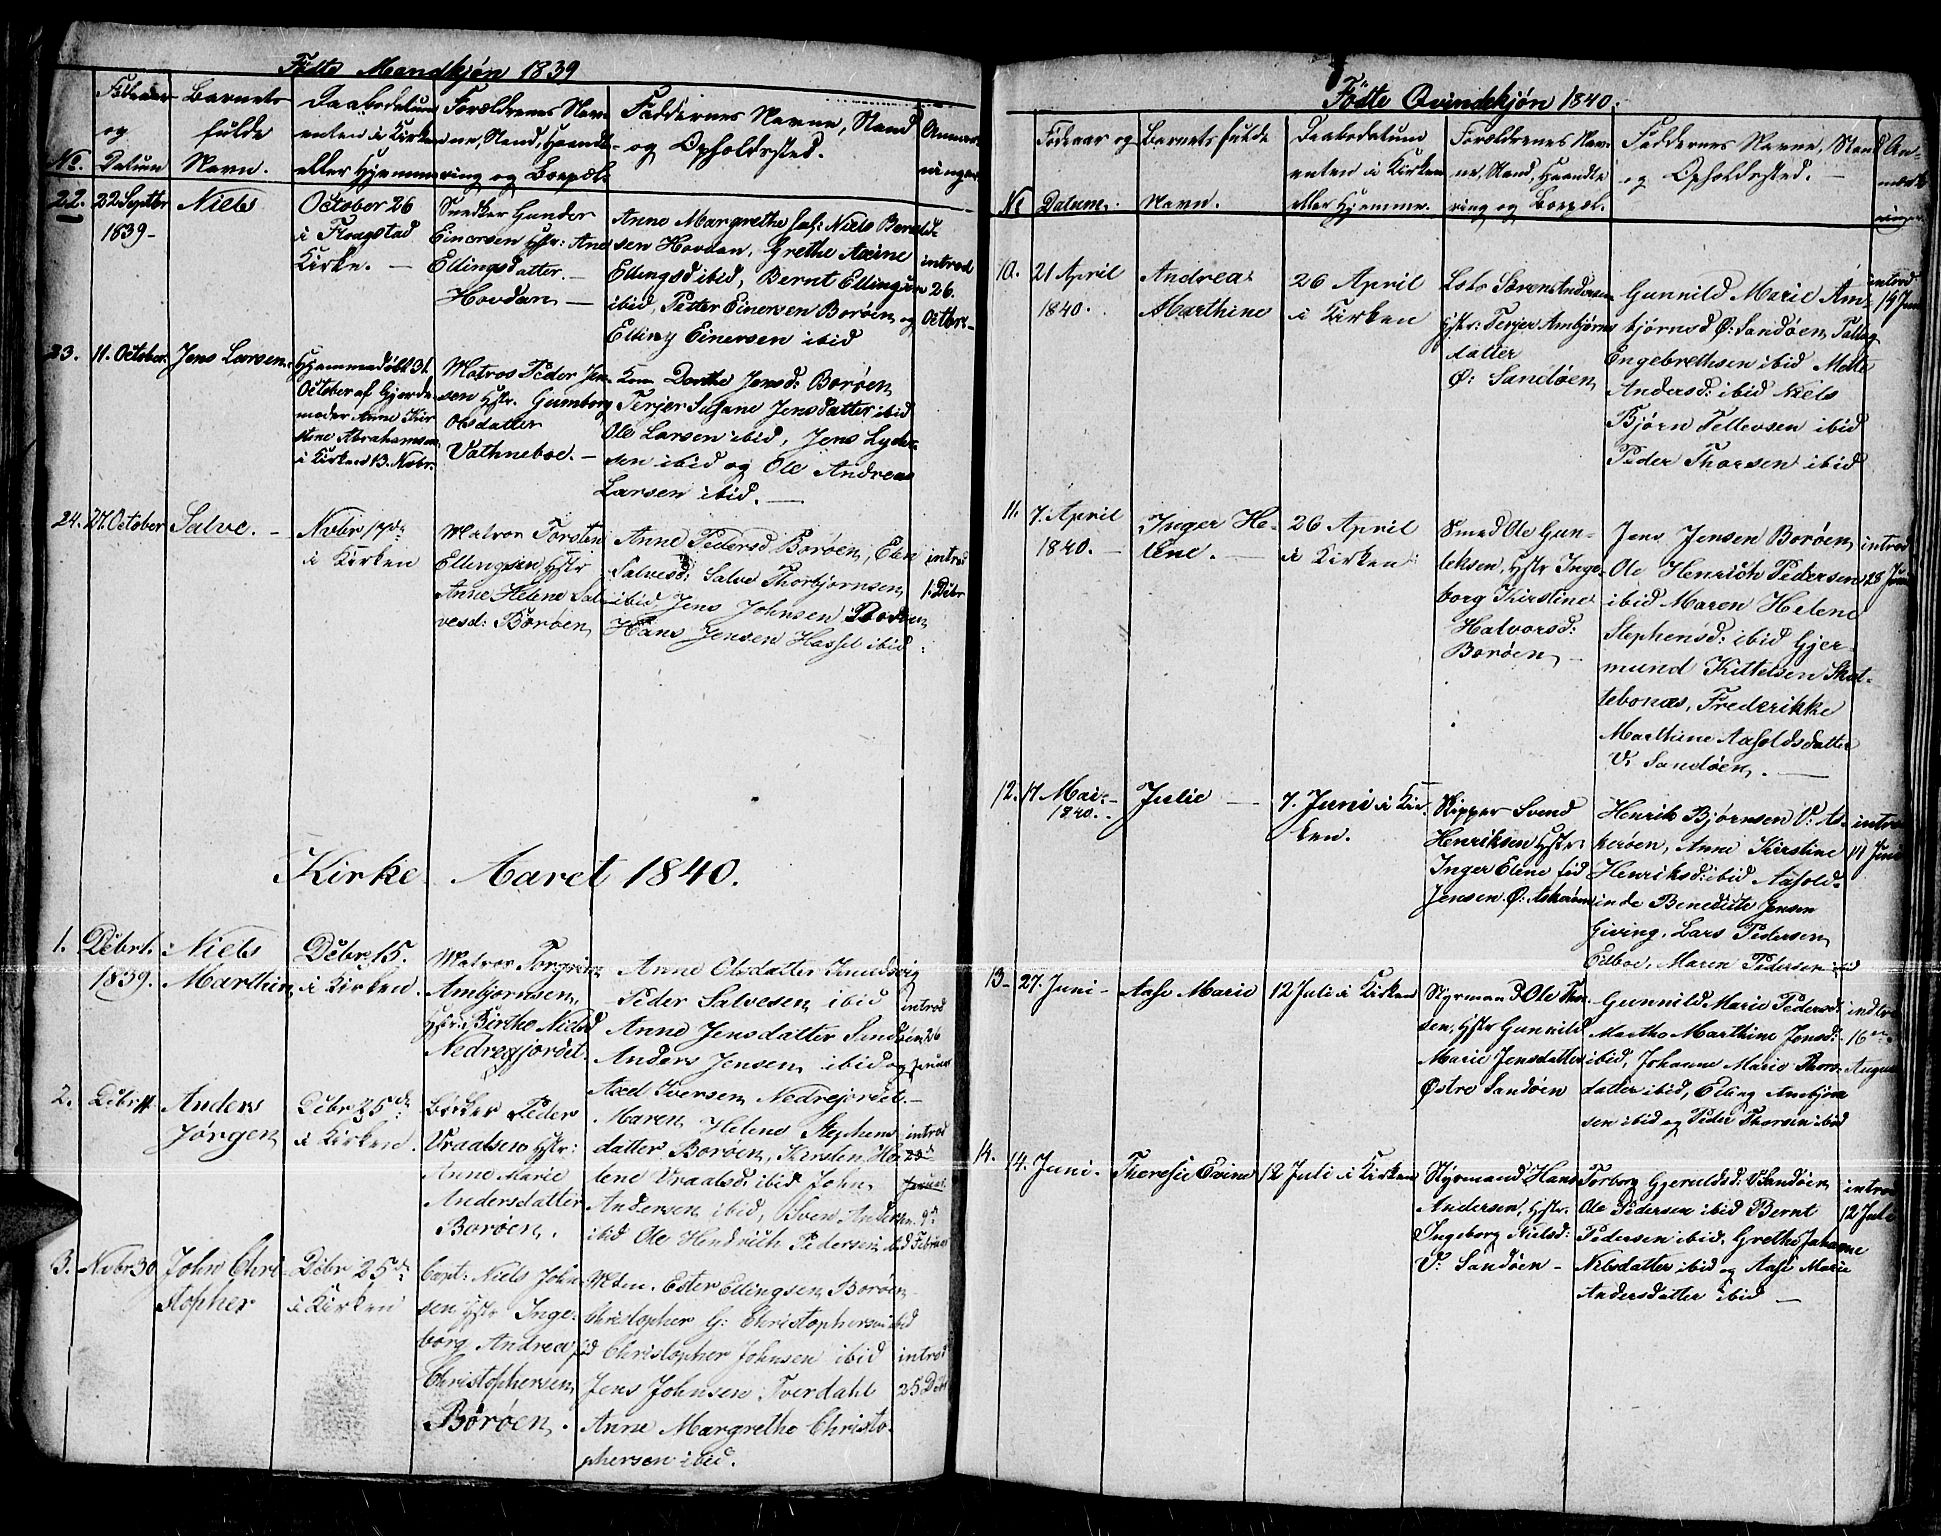 Födte Mandkjøn 1839
No.
Födeaar
og
Datum
Barnets
fulde
Navn.
Daabsdatum
enten i Kirken
eller Hjemme
Forældrenes Nav-
ne, Stand, Haandte-
ring og Boepæl.
Faddernes Navne, Stand
og Opholdssted.
Anmærk-
ninger
22.
22 Septbr
1839-
Niels
October 26
i Flaagstad
Kirke. —
Snedker Gunder
Einersen Hstr: Ane
Ellingsdatter. —
Hovdan —
Anne Margrethe Niels Berulf-
sen Hovdan, Grethe Axine
Ellingsd ibid, Bernt Ellingsen
ibid, Petter Einersen Borøen og
Elling Einersen ibid
introd
26.
Octbr-
23.
11. October
Jens Larsen.
Hjemmedøbt 31.
October af Gjorde-
moder Anne Kir-
stine Abrahamsen
i Kirken 13. Nvbr.
Matros Peder Jen-
sen Hstr. Gumborg
Olsdatter
Vathneboe. —
Kone Dorthe Jensd: Borøen
Terjer Susane Jensdatter ibid
Ole Larsen ibid, Jens Lyder-
sen ibid og Ole Andreas
Larsen ibid. —
24.
27. October
Salve. —
Nvbr 17de
i Kirken
Matros Torsten
Ellingsen, Hstr
Anne Helene Sal-
vesd: Borøen
Anne Pedersd Borøen, Elen
Salvesd: Salve Thorbjørnsen
ibid, Jens Johnsen Borøen
Hans Jensen Hassel ibid
introd
1. Debr
Kirke Aaret 1840.
1.
Debr 1.
1839.
Niels
Marthin
Debr 15.
i Kirken.
Matros Torgrim
Ambjornsen,
Hstr: Birthe Nielsd
Nedregjordet.
Anne Olsdatter
Peder Salvesen ibid
Anne Jensdatter Sandøen
Anders Jensen ibid og
Axel Iversen Nedrejordet. —
introd
26
Januar
2.
Debr 11.
Anders
Jörgen
Debr 25de
i Kirken.
Bødker Peder
Vraalsen Hstr:
Anne Marie
Andersdatter
Borøen.
Maren Helene Stephens
datter Borøen, Kirsten He-
lene Vraalsd: ibid John
Andersen ibid, Sven Andersen
ibid Ole Hendrich Pedersen ibid
introd
Januar
9de
Februar
3.
Nvbr 30
John Chri-
stopher
Debr 25de
i Kirken
Capt: Niels John-
sen Hstr Inge-
borg Andrea fød
Christophersen,
Borøen.
Mdm. Ester Ellingsen Borøen
Christopher G: Christophersen ibid
Christopher Johnsen ibid
Jens Johnsen Tverdahl
Anne Margrethe Christo-
phersen ibid.
introd
25. Debr
Födte Qvindekjön 1840.
No
Födeaar og
Datum.
Barnets fulde
Navn.
Daabsdatum
enten i Kirken
eller Hjemme.
Forældrenes Nav-
ne, Stand, Haandte
ring og Boepæl.
Faddernes Navne, Stand
og Opholdssted. —
An-
mærk-
ninger
10.
21 April
1840.
Andrea
Marthine
26 April
i Kirken
Lods Søren Andersen
Hstr: Terjer Ambjørns
datter
Ø: Sandøen
Gunnild Marie Am-
bjørnsd Ø: Sandøen, Tellag
Engebrethsen ibid Mette
Andersd: ibid Niels
Bjørn Tellevsen ibid
Peder Thorsen ibid
introd
11.
7. April
1840. —
Inger He-
lene. —
26 April
i Kirken
Smed Ole Gun-
leksen, Hstr Inge-
borg Kirstine
Halvorsd:
Borøen —
Jens Jensen Borøen
Ole Henrich Pedersen
ibid Maren Helene
Stephensd: ibid Gjer-
mund Kittelsen Skot-
tebonæs, Frederikke
Marthine Aasoldsdatter
V. Sandøen. —
introd
28 Juni
12.
17 Mai —
1840. —
Julie —
7. Juni i Kir-
ken.
Skipper Svend
Henriksen Hstr
Inger Elene fød
Jensen Ø: Askerøen
Henrik Bjørnsen V: As-
kerøen, Anne Kirstine
Henriksd: ibid Aasold-
inde Benedicte Jensen
Giving, Lars Pedersen
Edboe, Maren Pedersen ibid
introd
Juni
13-
27. Juni-
Aase Marie
12 Juli i Kirken
Styrmand Ole Thor-
sen, Hstr Gunnild
Marie Jensdatter
Østre Sandøen
Gunnild Marie Pedersd:
Martha Marthine Jensd:
ibid, Johanne Marie Thors-
datter ibid, Elling Ambjørn
sen ibid og Peder Thorsen ibid
indtro
16de
August
14.
14. Juni.
Theresie Evine
12 Juli i Kirken
Styrmand Hans
Andersen, Hstr.
Ingeborg Nielsd:
V: Sandøen —
Torborg Gjeruldsd: V. Sandøen
Ole Pedersen ibid Bernt
Pedersen ibid, Grethe Johanne
Nilsdatter ibid og Aase Marie
Andersdatter ibid —
introd
12 Juli